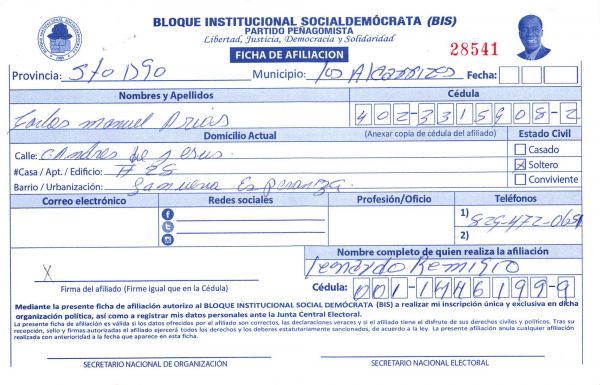 BLOQUE INSTITUCIONAL SOCIALDEMÓCRATA (BIS)
PARTIDO PEÑAGOMISTA
Libertad, Justicia, Democracia y Solidaridad
FICHA DE AFILIACION
28541
Provincia: Sto Dgo Municipio: Los Alcarrizos Fecha:
Nombres y Apellidos Cédula
Carlos Manuel Arias 402-3315908-2
Domicilio Actual (Anexar copia de cédula del afiliado) Estado Civil
Calle: C. Andres de Jesus.
Casado
#Casa / Apt. / Edificio: # 28
Soltero
Barrio / Urbanización: La nueva Esperanza.
Conviviente
Correo electrónico Redes sociales Profesión/Oficio Teléfonos
1) 829-472-0651
2)
Nombre completo de quien realiza la afiliación
X Leonardo Remigio
Firma del afiliado (Firme igual que en la Cédula) Cédula: 001-1446199-9
Mediante la presente ficha de afiliación autorizo al BLOQUE INSTITUCIONAL SOCIAL DEMÓCRATA (BIS) a realizar mi inscripción única y exclusiva en dicha
organización política, así como a registrar mis datos personales ante la Junta Central Electoral.
La presente ficha de afiliación es válida si los datos ofrecidos por el afiliado son correctos, las declaraciones veraces y si el afiliado tiene el disfrute de sus derechos civiles y políticos. Tras su
recepción, sello y firmas autorizadas el afiliado ejercerá todos los derechos y los deberes estatutariamente sancionados, de acuerdo a la ley. La presente afiliación anula cualquier afiliación
realizada con anterioridad a la fecha que aparece en esta ficha.
SECRETARIO NACIONAL DE ORGANIZACIÓN SECRETARIO NACIONAL ELECTORAL